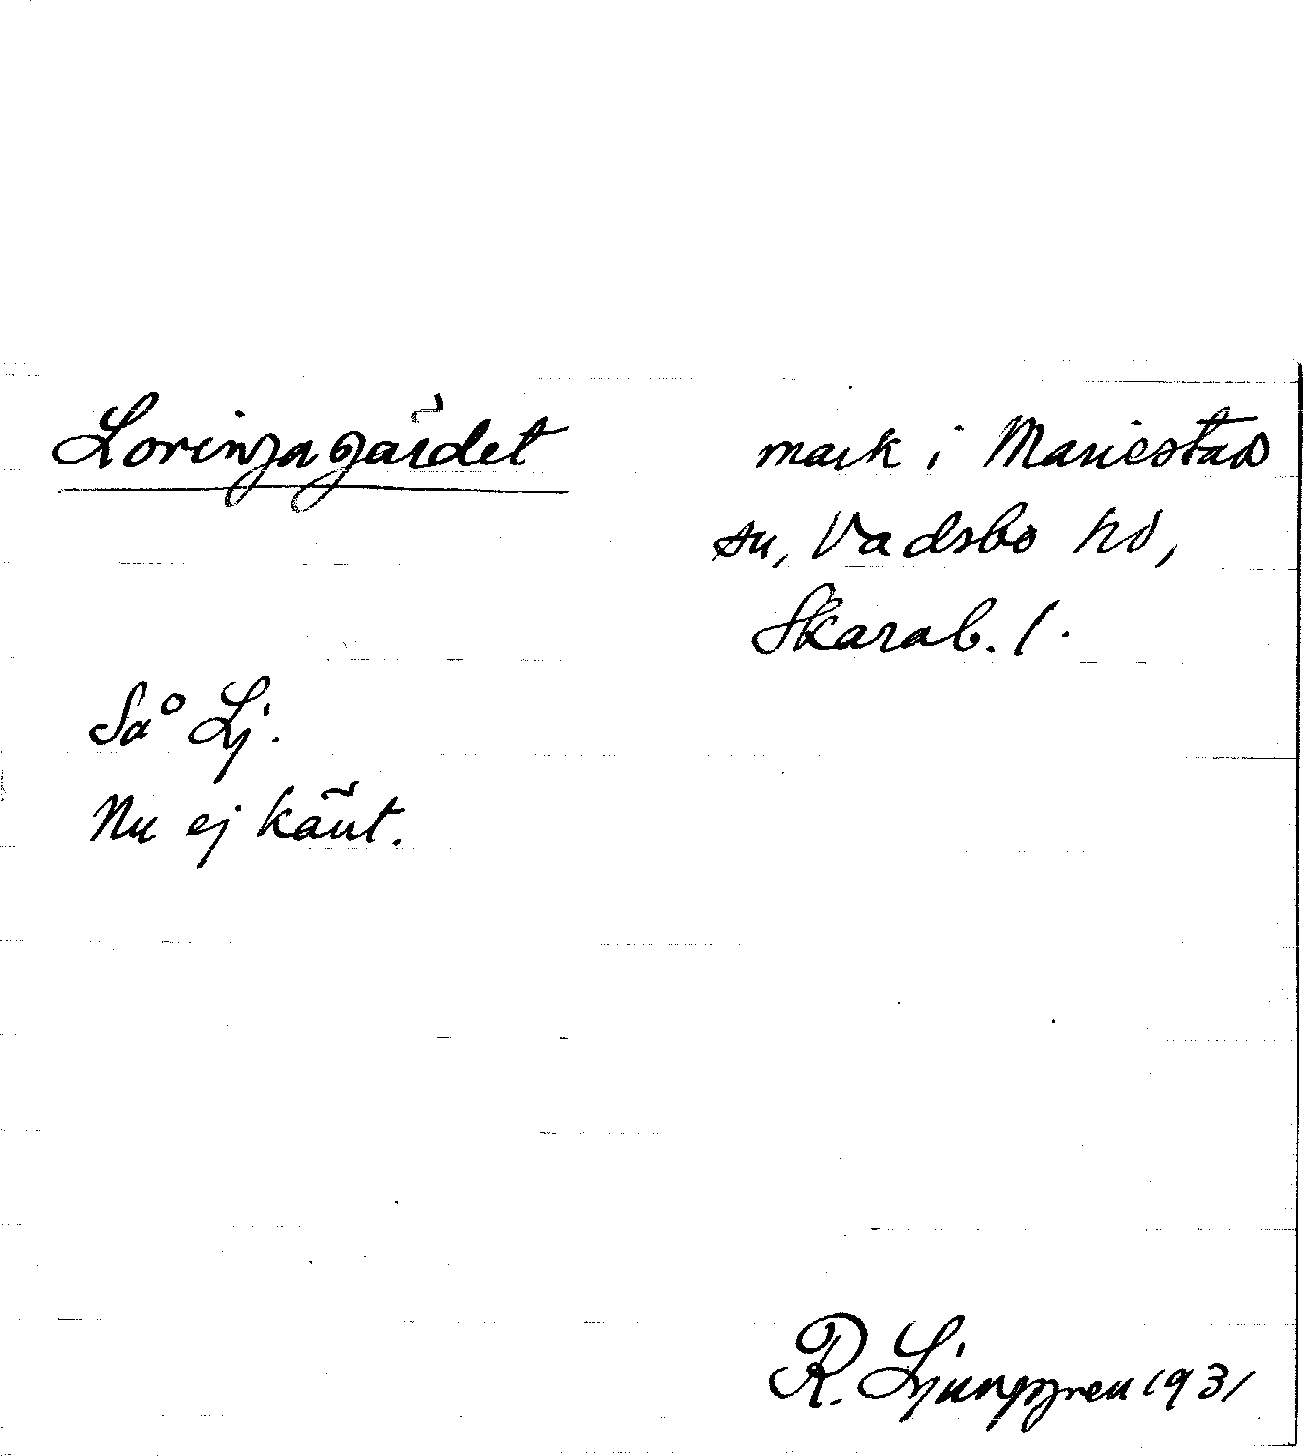 Loringagärdet
mark i Mariestad
sn, Vadsbo hd,
Skarab. l.
Så Lj.
Nu ej känt.
R. Ljunggren 1931